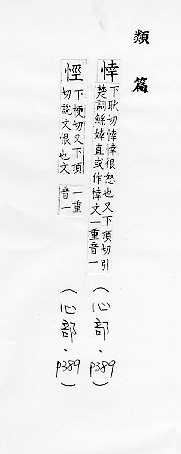 類篇
悻 下耿切悻悻很怒也又下頂切引
楚詞鯀婞直或作悻文一重音一
(心部、p389)
悭 下梗切又下頂
切說文恨也文
一重
音一
(心部、p389)